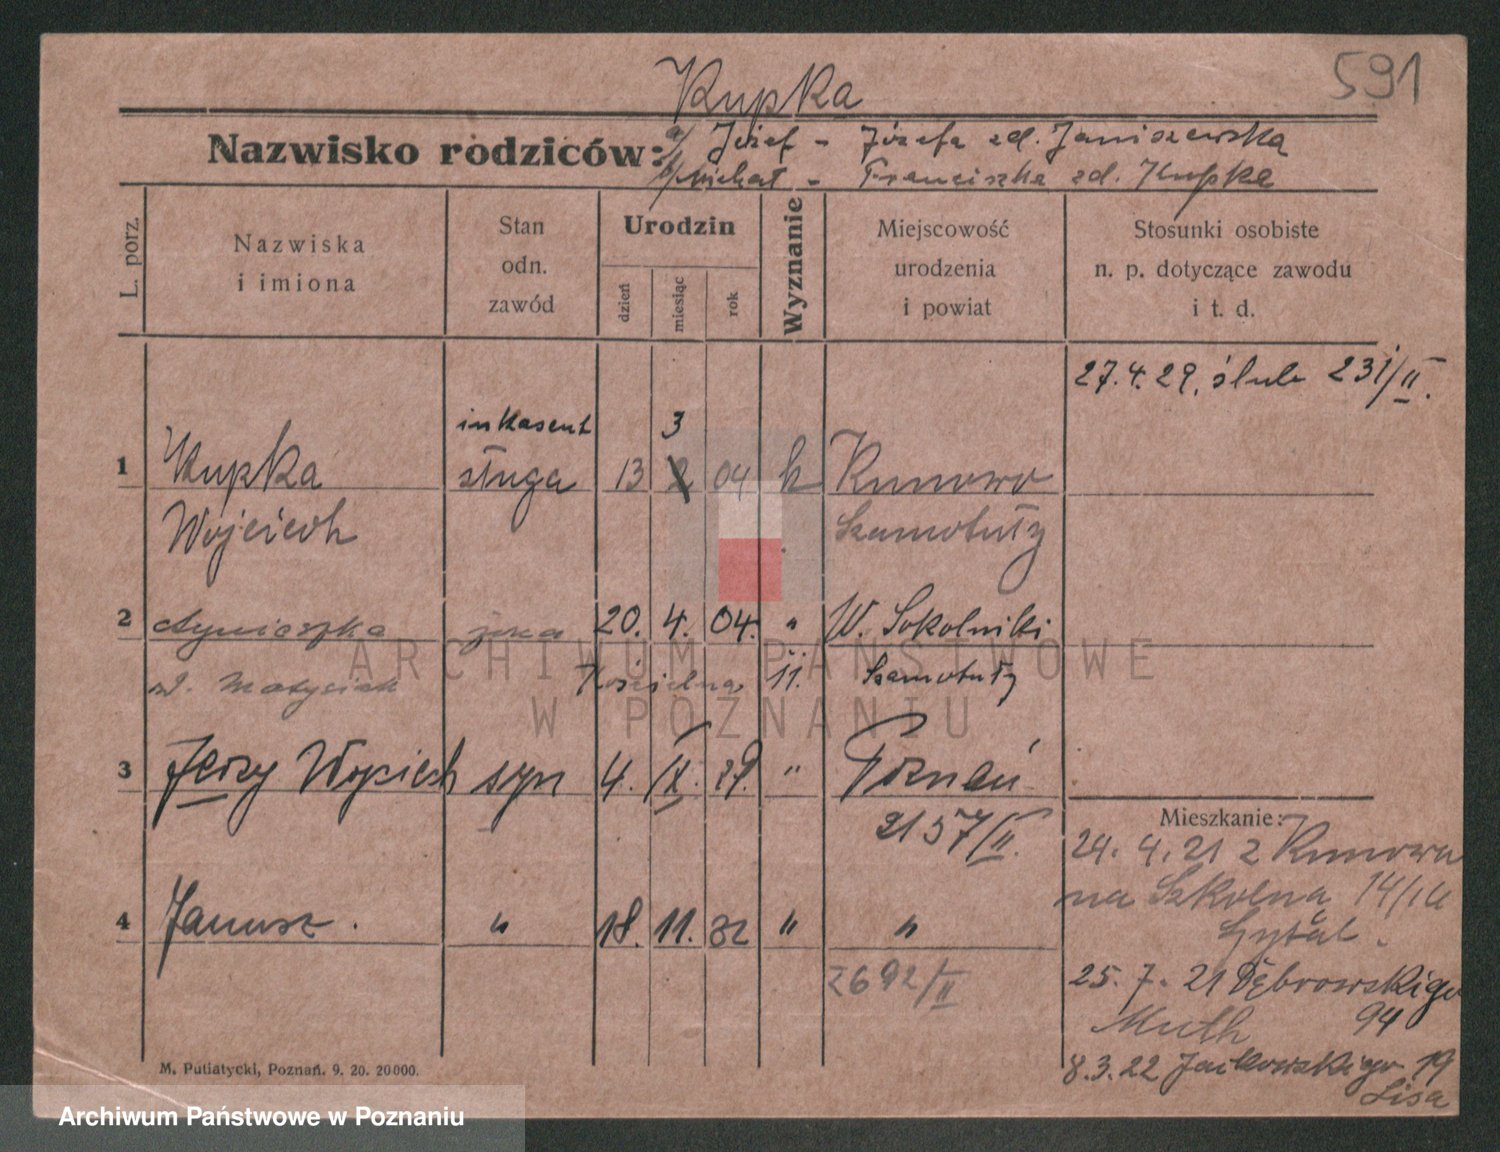 591
Kupka
Nazwisko rodziców:
a/ Józef - Józefa zd. Janiszewska
b/ Michał - Franciszka zd. Kupka
L. porz.
Nazwiska
i imiona
Stan
odn.
zawód
Urodzin
dzień
miesiąc
rok
Wyznanie
Miejscowość
urodzenia
i powiat
Stosunki osobiste
n. p. dotyczące zawodu
i t. d.
27.4.29. ślub 231/II.
inkasent 3
1 Kupka sługa 13 2 04 k Kunowo
Wojciech Szamotuły
2 Agnieszka żona 20. 4. 04. " W. Sokolniki
zd. Matysiak Szamotuły
3 Jerzy Wojciech syn 4. IX. 29. " Poznań
2157/II.
4 Janusz. " 18. 11. 32 " "
2692/II
Mieszkanie:
24. 4. 21 z Kunowa
na Szkolna 14/
25. 7. 21 Dąbrowskiego
Muth 94
8.3.22 Jackowskiego 19
Lisa
M. Putiatycki, Poznań. 9. 20. 20000.
ARCHIWUM PAŃSTWOWE
W POZNANIU
Archiwum Państwowe w Poznaniu